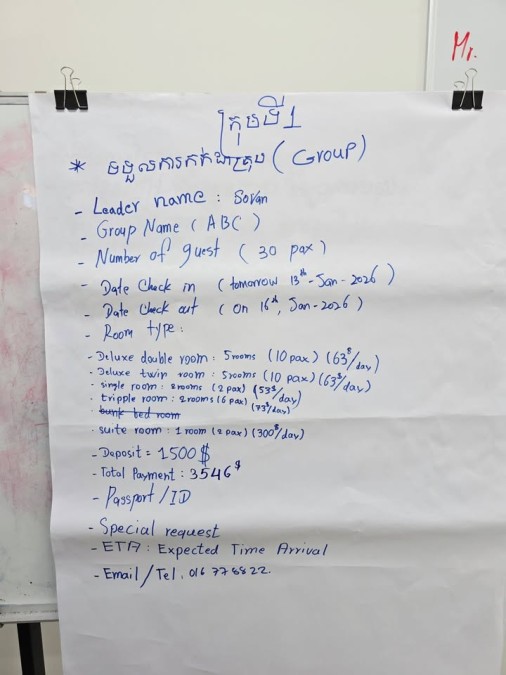 Mr.
ក្រុមទី1
* ទទួលការកក់ជាក្រុម (Group)
- Leader name : Sovan
- Group Name ( ABC )
- Number of guest ( 30 pax )
- Date Check in ( tomorrow 13th - Jan - 2026 )
- Date Check out ( on 16th, Jan - 2026 )
- Room type :
- Deluxe double room : 5 rooms (10 pax) (63$/day)
- Deluxe twin room : 5 rooms (10 pax) (63$/day)
- single room : 2 rooms (2 pax) (53$/day)
- tripple room : 2 rooms (6 pax) (73$/day)
- bunk bed room
- suite room : 1 room (2 pax) (300$/day)
- Deposit = 1500$
- Total Payment : 3546$
- Passport/ID
- Special request
- ETA : Expected Time Arrival
- Email/Tel : 016 778822